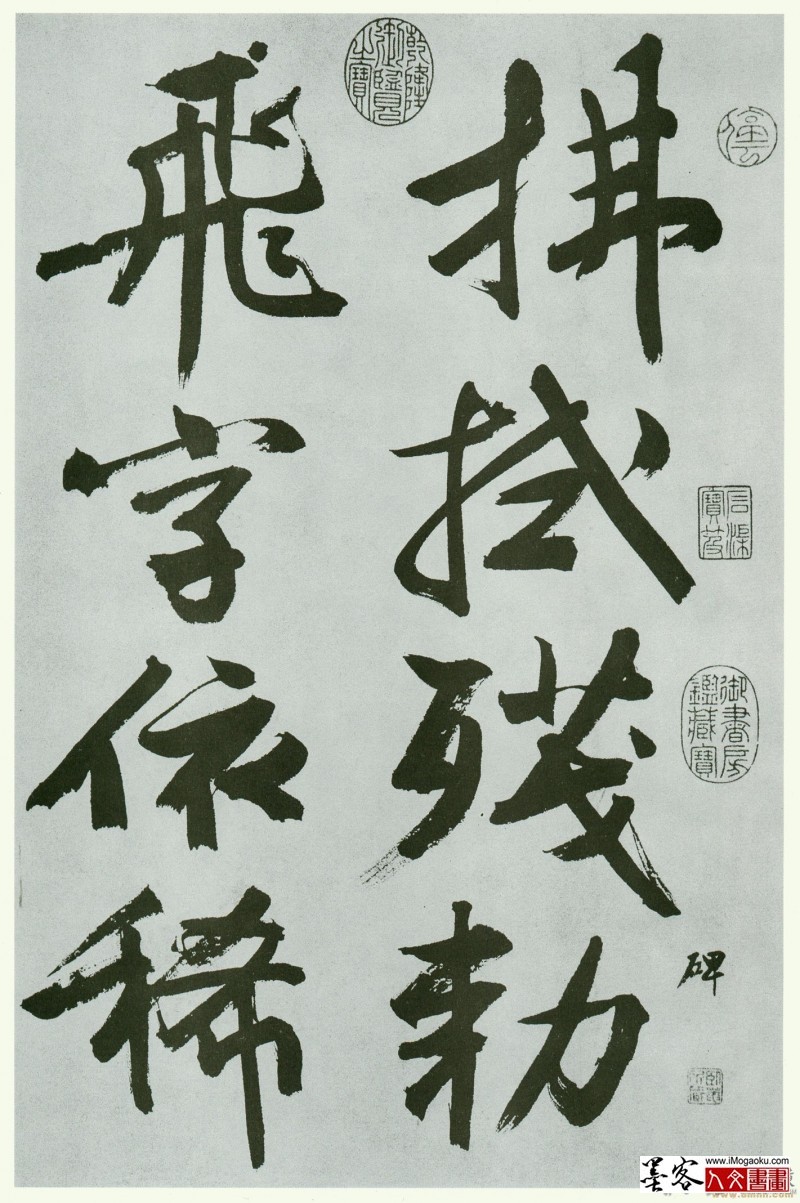 拂拭殘勅
碑
飛字依稀
乾隆御覽之寶
石渠寶笈
御書房鑑藏寶
墨客
www.iMogaoku.com
人文書畫